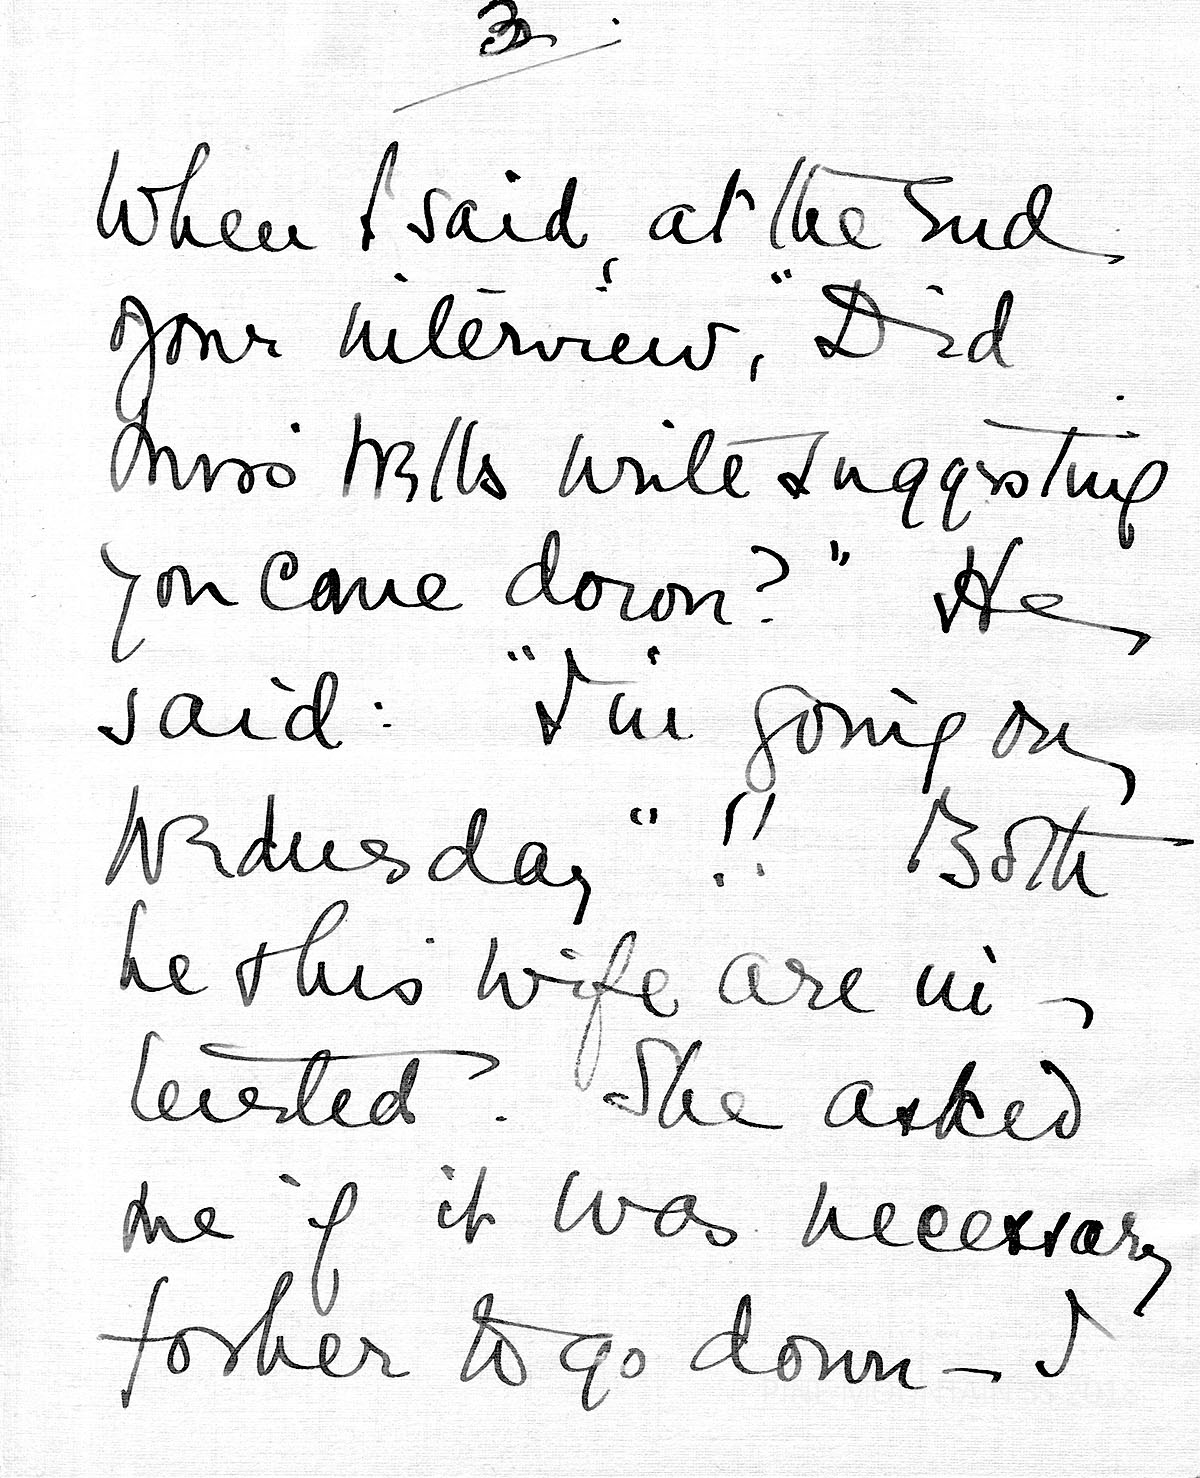 3.
When I said, at the end
your interview, "Did
Miss Wells write suggesting
you come down?" He
said: "I'm going on
Wednesday" !! Both
he & his wife are in-
terested. She asked
me if it was necessary
for her to go down — I